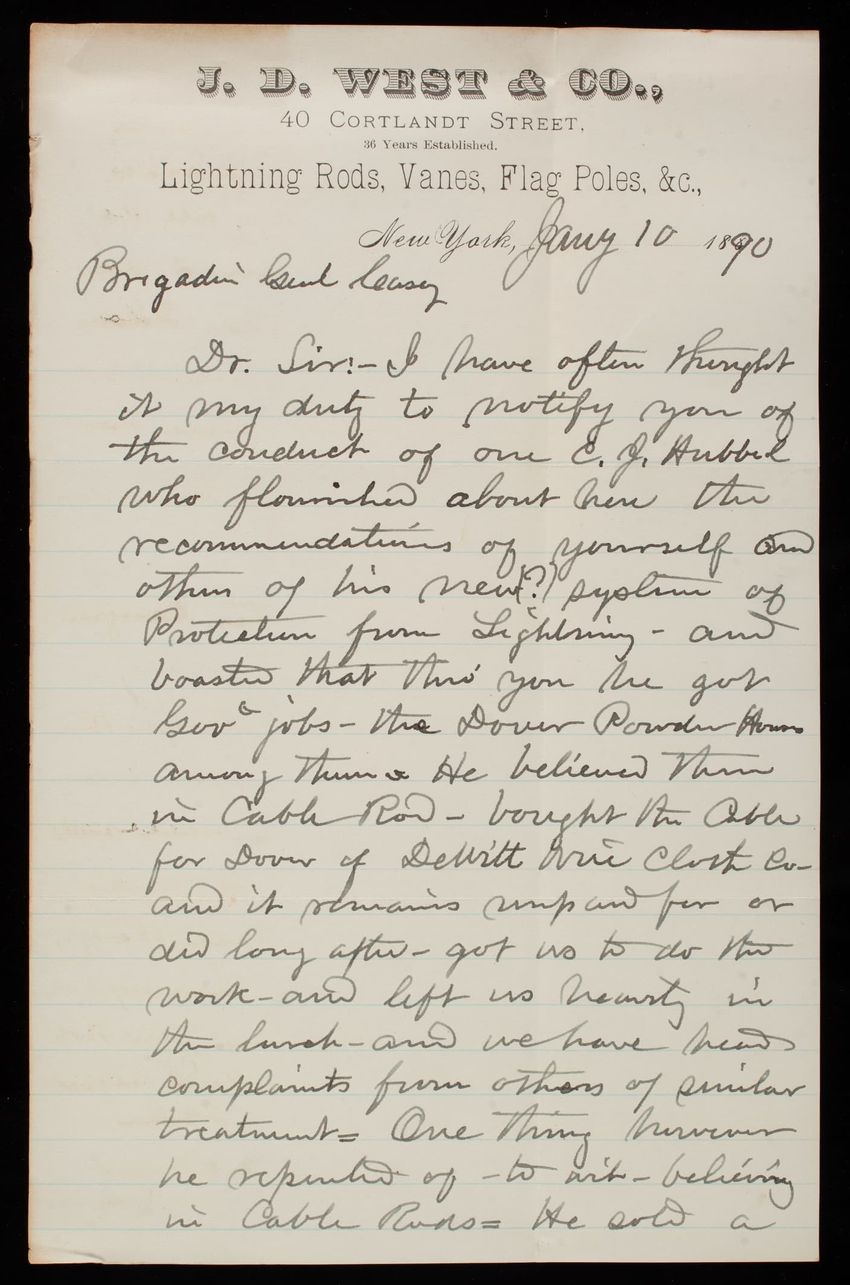 J. D. WEST & CO.,
40 CORTLANDT STREET,
36 Years Established.
Lightning Rods, Vanes, Flag Poles, &c.,
New York, Jany 10 1890
Brigadier Genl Casey
Dr. Sir:- I have often thought
it my duty to notify you of
the conduct of one C. J. Hubbel
who flourished about here the
recommendations of yourself and
others of his new (?) system of
Protection from Lightning - and
boasted that thro' you he got
Govt jobs - the Dover Powder House
among them = He believed then
in Cable Rod - bought the Cable
for Dover of DeWitt Wire Cloth Co -
and it remains unpaid for or
did long after - got us to do the
work - and left us nearly in
the lurch - and we have heard
complaints from others of similar
treatment = One thing however
he repented of - to wit - believing
in Cable Rods = He sold a